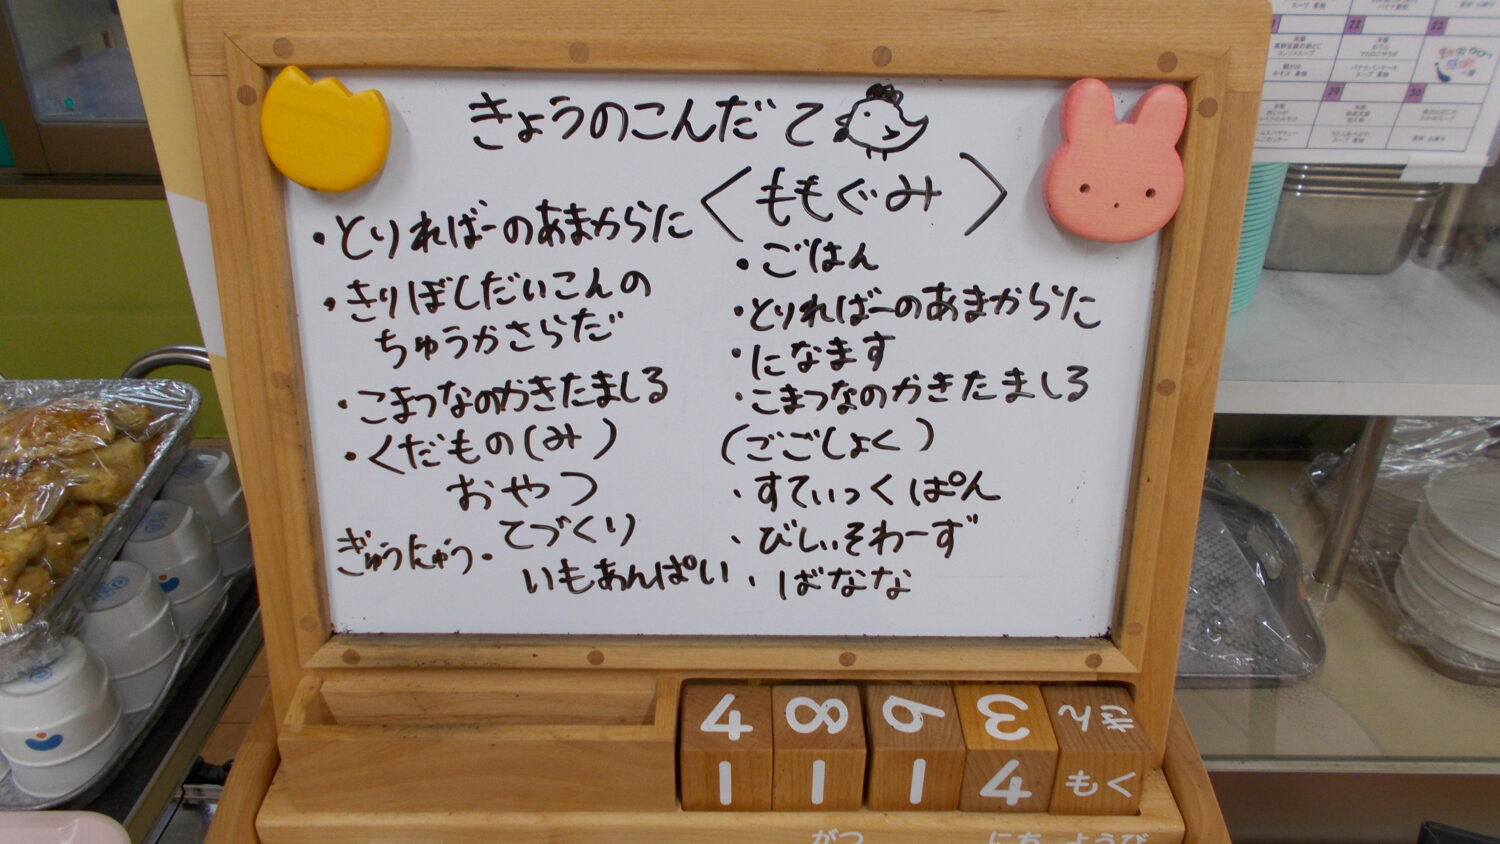 きょうのこんだて
・とりればーのあまからに
・きりぼしだいこんの
ちゅうかさらだ
・こまつなのかきたましる
・くだもの(み)
おやつ
ぎゅうにゅう・てづくり
いもあんぱい
〈ももぐみ〉
・ごはん
・とりればーのあまからに
・になます
・こまつなのかきたましる
(ごごしょく)
・すてぃっくぱん
・びしぃそわーず
・ばなな
4 8 6 3 きん
1 1 1 4 もく
がつ にち ようび